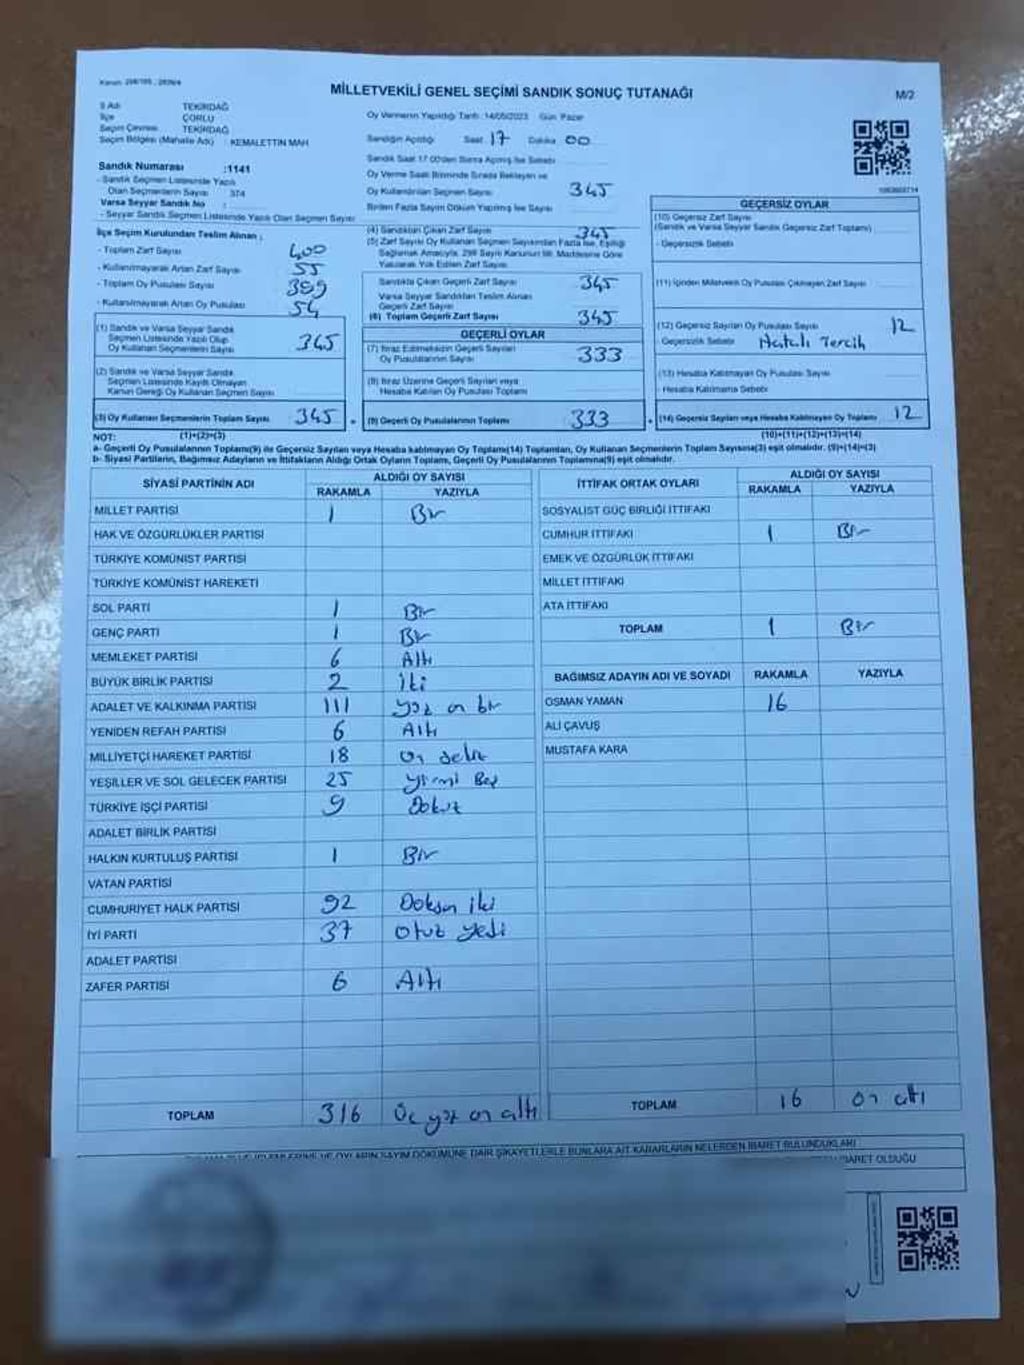 MİLLETVEKİLİ GENEL SEÇİMİ SANDIK SONUÇ TUTANAĞI
M/2
İl Adı TEKİRDAĞ
İlçe ÇORLU
Seçim Çevresi TEKİRDAĞ
Seçim Bölgesi (Mahalle Adı) : KEMALETTİN MAH
Oy Vermenin Yapıldığı Tarih: 14/05/2023 Gün: Pazar
Sandığın Açıldığı Saat 17 Dakika 00
Sandık Saat 17:00'den Sonra Açılmış İse Sebebi
Oy Verme Saati Bitiminde Sırada Bekleyen ve
Oy Kullandırılan Seçmen Sayısı 345
Birden Fazla Sayım Döküm Yapılmış İse Sayısı
Sandık Numarası :1141
- Sandık Seçmen Listesinde Yazılı
Olan Seçmenlerin Sayısı : 374
Varsa Seyyar Sandık No :
- Seyyar Sandık Seçmen Listesinde Yazılı Olan Seçmen Sayısı
İlçe Seçim Kurulundan Teslim Alınan ;
- Toplam Zarf Sayısı 400
- Kullanılmayarak Artan Zarf Sayısı 55
- Toplam Oy Pusulası Sayısı 399
- Kullanılmayarak Artan Oy Pusulası 54
(1) Sandık ve Varsa Seyyar Sandık
Seçmen Listesinde Yazılı Olup
Oy Kullanan Seçmenlerin Sayısı 345
(2) Sandık ve Varsa Seyyar Sandık
Seçmen Listesinde Kayıtlı Olmayan
Kanun Gereği Oy Kullanan Seçmen Sayısı
(3) Oy Kullanan Seçmenlerin Toplam Sayısı 345
(1)+(2)=(3)
(4) Sandıktan Çıkan Zarf Sayısı 345
(5) Zarf Sayısı Oy Kullanan Seçmen Sayısından Fazla İse, Eşitliği
Sağlamak Amacıyla, 298 Sayılı Kanunun 98. Maddesine Göre
Yakılarak Yok Edilen Zarf Sayısı
Sandıkta Çıkan Geçerli Zarf Sayısı 345
Varsa Seyyar Sandıktan Teslim Alınan
Geçerli Zarf Sayısı
(6) Toplam Geçerli Zarf Sayısı 345
GEÇERLİ OYLAR
(7) İtiraz Edilmeksizin Geçerli Sayılan
Oy Pusulalarının Sayısı 333
(8) İtiraz Üzerine Geçerli Sayılan veya
Hesaba Katılan Oy Pusulası Toplamı
(9) Geçerli Oy Pusulalarının Toplamı 333
GEÇERSİZ OYLAR
(10) Geçersiz Zarf Sayısı
(Sandık ve Varsa Seyyar Sandık Geçersiz Zarf Toplamı)
- Geçersizlik Sebebi
(11) İçinden Milletvekili Oy Pusulası Çıkmayan Zarf Sayısı
(12) Geçersiz Sayılan Oy Pusulası Sayısı 12
- Geçersizlik Sebebi Hatalı Tercih
(13) Hesaba Katılmayan Oy Pusulası Sayısı
- Hesaba Katılmama Sebebi
(14) Geçersiz Sayılan veya Hesaba Katılmayan Oy Toplamı 12
(10)+(11)+(12)+(13)=(14)
NOT:
a- Geçerli Oy Pusulalarının Toplamı(9) ile Geçersiz Sayılan veya Hesaba katılmayan Oy Toplamı(14) Toplamları, Oy Kullanan Seçmenlerin Toplam Sayısına(3) eşit olmalıdır. (9)+(14)=(3)
b- Siyasi Partilerin, Bağımsız Adayların ve İttifakların Aldığı Ortak Oyların Toplamı, Geçerli Oy Pusulalarının Toplamına(9) eşit olmalıdır.
SİYASİ PARTİNİN ADI ALDIĞI OY SAYISI
RAKAMLA YAZIYLA
MİLLET PARTİSİ 1 Bir
HAK VE ÖZGÜRLÜKLER PARTİSİ
TÜRKİYE KOMÜNİST PARTİSİ
TÜRKİYE KOMÜNİST HAREKETİ
SOL PARTİ 1 Bir
GENÇ PARTİ 1 Bir
MEMLEKET PARTİSİ 6 Altı
BÜYÜK BİRLİK PARTİSİ 2 iki
ADALET VE KALKINMA PARTİSİ 111 yüz on bir
YENİDEN REFAH PARTİSİ 6 Altı
MİLLİYETÇİ HAREKET PARTİSİ 18 on sekiz
YEŞİLLER VE SOL GELECEK PARTİSİ 25 yirmi Beş
TÜRKİYE İŞÇİ PARTİSİ 9 Dokuz
ADALET BİRLİK PARTİSİ
HALKIN KURTULUŞ PARTİSİ 1 Bir
VATAN PARTİSİ
CUMHURİYET HALK PARTİSİ 92 Doksan iki
İYİ PARTİ 37 otuz yedi
ADALET PARTİSİ
ZAFER PARTİSİ 6 Altı
TOPLAM 316 üç yüz on altı
İTTİFAK ORTAK OYLARI ALDIĞI OY SAYISI
RAKAMLA YAZIYLA
SOSYALİST GÜÇ BİRLİĞİ İTTİFAKI
CUMHUR İTTİFAKI 1 Bir
EMEK VE ÖZGÜRLÜK İTTİFAKI
MİLLET İTTİFAKI
ATA İTTİFAKI
TOPLAM 1 Bir
BAĞIMSIZ ADAYIN ADI VE SOYADI RAKAMLA YAZIYLA
OSMAN YAMAN 16
ALİ ÇAVUŞ
MUSTAFA KARA
TOPLAM 16 on altı
VE OYLARIN SAYIM DÖKÜMÜNE DAİR ŞİKAYETLERLE BUNLARA AİT KARARLARIN NELERDEN İBARET BULUNDUKLARI
İBARET OLDUĞU